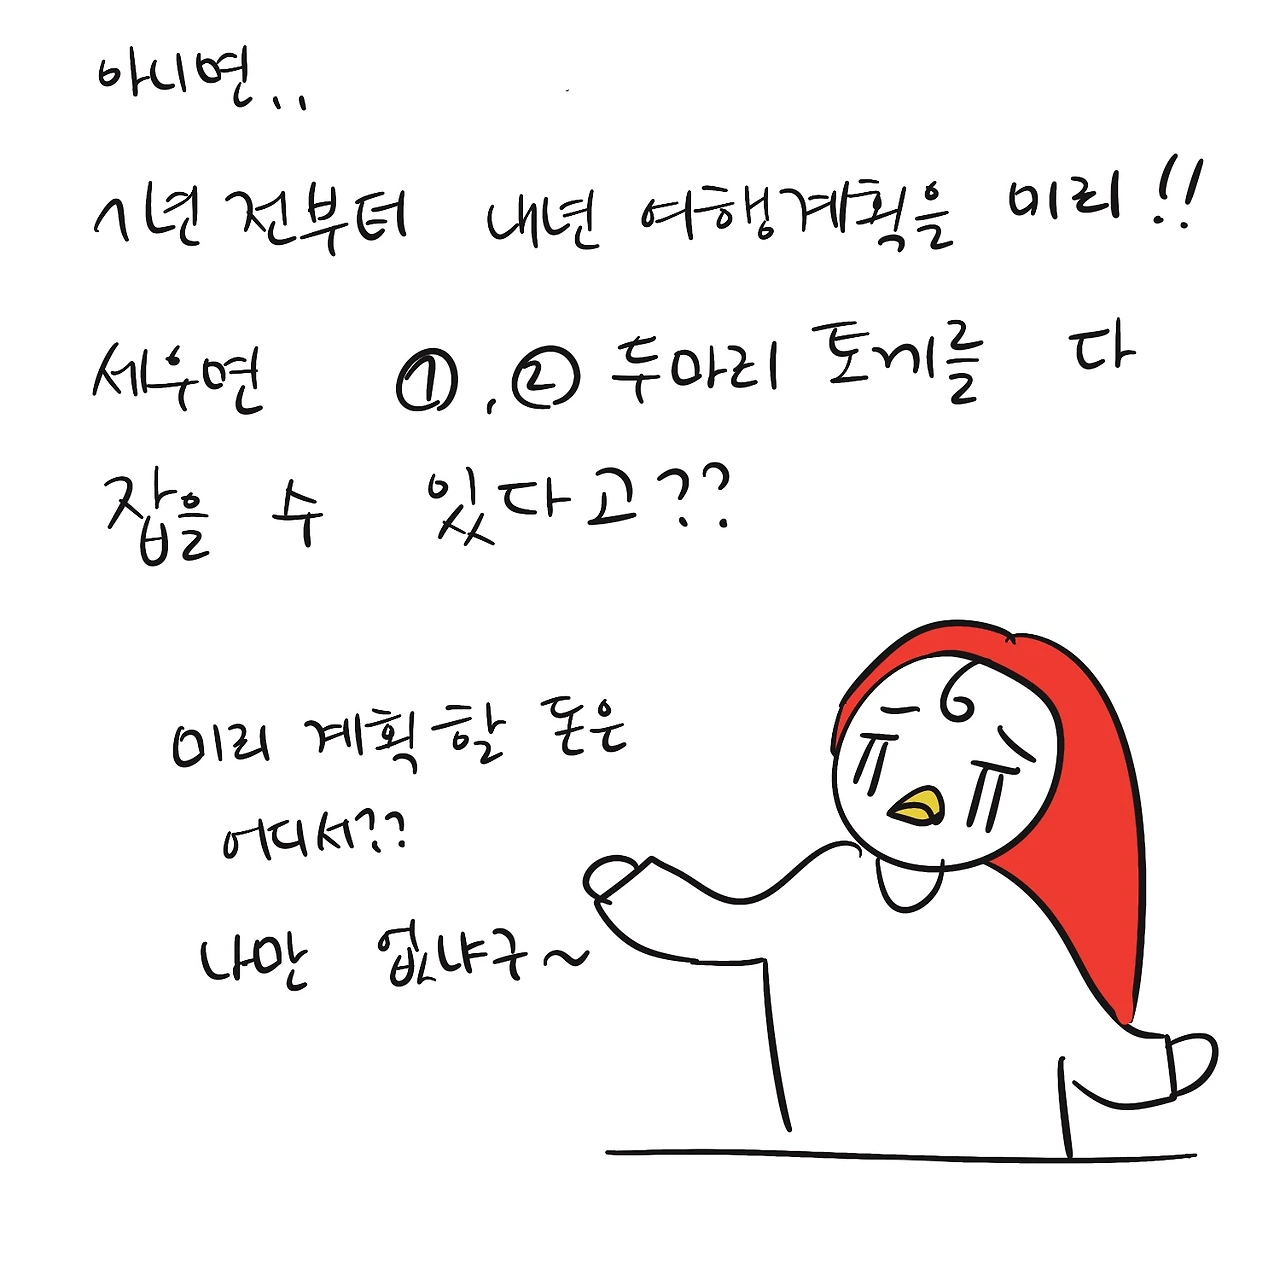 아니면..
1년 전부터 내년 여행계획을 미리!!
세우면 ①, ② 두마리 토끼를 다
잡을 수 있다고??
미리 계획할 돈은
어디서??
나만 없냐구~